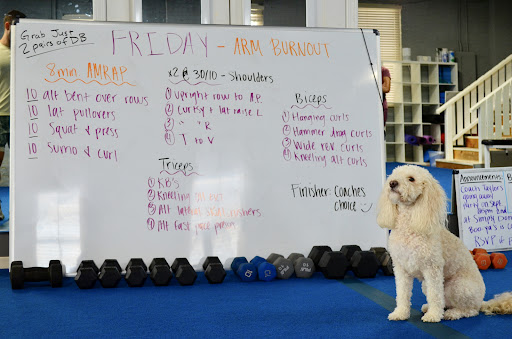 Grab Just
2 pairs of DB
FRIDAY - ARM BURNOUT
8min AMRAP
10 alt bent over rows
10 lat pullovers
10 Squat & press
10 Sumo & curl
x2 @ 30/10 - Shoulders
① Upright row to A.P.
② Curtsy + lat raise L
③ " " R
④ T to V
Biceps
① Hanging curls
② Hammer drag curls
③ Wide rev. curls
④ Kneeling alt curls
Triceps
① KB's
② Kneeling
③ Alt
④ Alt fast pace
Finisher: Coaches
Choice
Announcements
Coach Taylors
RSVP